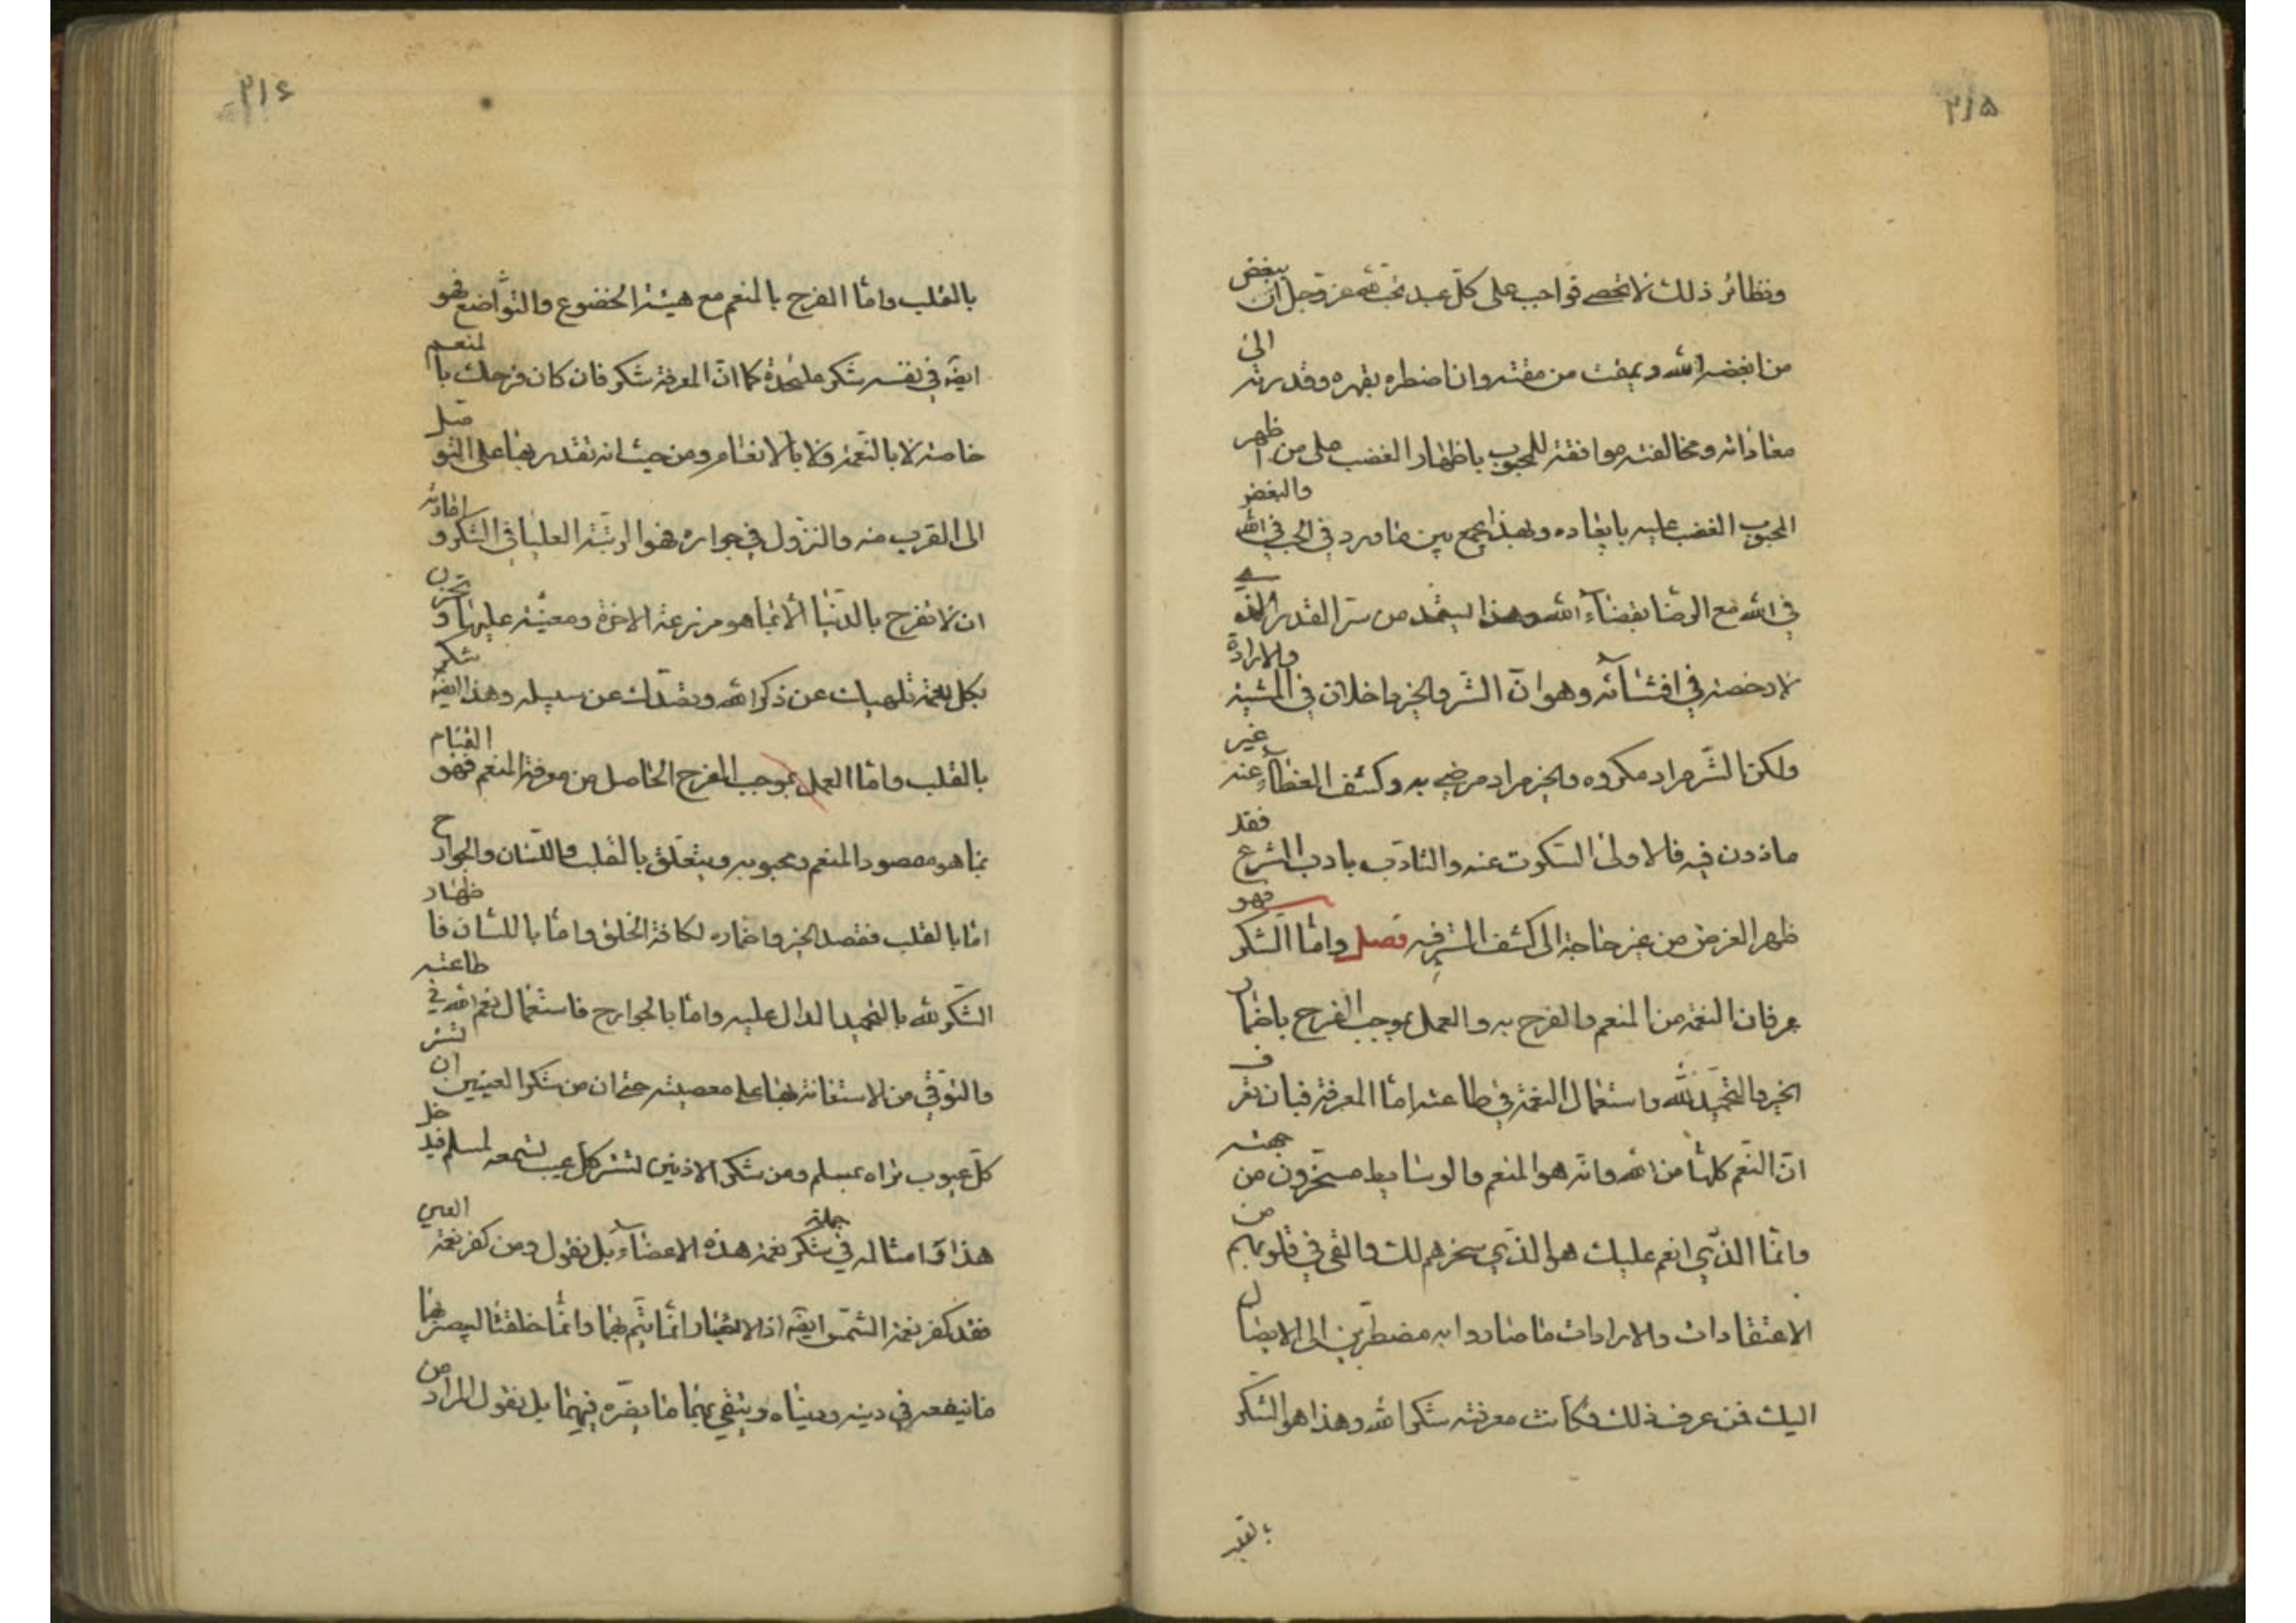 ٢١٥
ونظائر ذلك لا تحصى فواجب على كل عبد محب لله عز وجل ان يبغض
من ابغضه الله ويمقت من مقته وان اضطره بقهره وقدرته الى
معاداته ومخالفته موافقة للمحبوب باظهار الغضب على من اظهر
المحبوب الغضب عليه بابعاده وبهذا يجمع بين ما ورد في الحب في الله والبغض
في الله مع الرضا بقضاء الله وهذا يستمد من سر القدر الذي
لا رخصة في افشائه وهو ان الشر والخير داخلان في المشية والارادة
ولكن الشر مراد مكروه والخير مراد مرضي به وكشف الغطاء عنه غير
ماذون فيه فالاولى السكوت عنه والتادب بادب الشرع فقد
ظهر الغرض من غير حاجة الى كشف السر فيه فصل واما الشكر فهو
عرفان النعمة من المنعم والفرح به والعمل بموجب الفرح باضمار
الخير والتحميد لله واستعمال النعمة في طاعته اما المعرفة فبان تعرف
ان النعم كلها من الله وانه هو المنعم والوسايط مسخرون من جهته
وانما الذي انعم عليك هو الذي سخرهم لك والقى في قلوبهم من
الاعتقادات والارادات ما صاروا به مضطرين الى الايصال
اليك فمن عرف ذلك فكانت معرفته شكرا لله وهذا هو الشكر
بالقلب
٢١٦
بالقلب واما الفرح بالمنعم مع هيئة الخضوع والتواضع فهو
ايضا في نفسه شكر على حدة كما ان المعرفة شكر فان كان فرحك بالمنعم
خاصة لا بالنعمة ولا بالانعام ومن حيث انه تقدر بها على التوصل
الى القرب منه والنزول في جواره فهو الرتبة العليا في الشكر وامارته
ان لا تفرح بالدنيا الا بما هو مزرعة الاخرة ومعينة عليها وتحزن
بكل نعمة تلهيك عن ذكر الله وتصدك عن سبيله وهذا ايضا شكر
بالقلب واما العمل بموجب الفرح الحاصل من معرفة المنعم فهو القيام
بما هو مقصود المنعم ومحبوبه ويتعلق بالقلب واللسان والجوارح
اما بالقلب فقصد الخير واضماره لكافة الخلق واما باللسان فاظهار
الشكر لله بالتحميد الدال عليه واما بالجوارح فاستعمال نعم الله في طاعته
والتوقي من الاستعانة بها على معصيته حتى ان من شكر العينين ان تستر
كل عيوب تراه بمسلم ومن شكر الاذنين تستر كل عيب تسمعه لمسلم فيدخل
هذا وامثاله في جملة شكر نعمة هذه الاعضاء بل نقول ومن كفر نعمة العين
فقد كفر نعمة الشمس ايضا اذ الابصار انما يتم بهما وانما خلقتا ليبصر بهما
ما ينفعه في دينه ودنياه ويتقي بهما ما يضره فيهما بل نقول المراد من